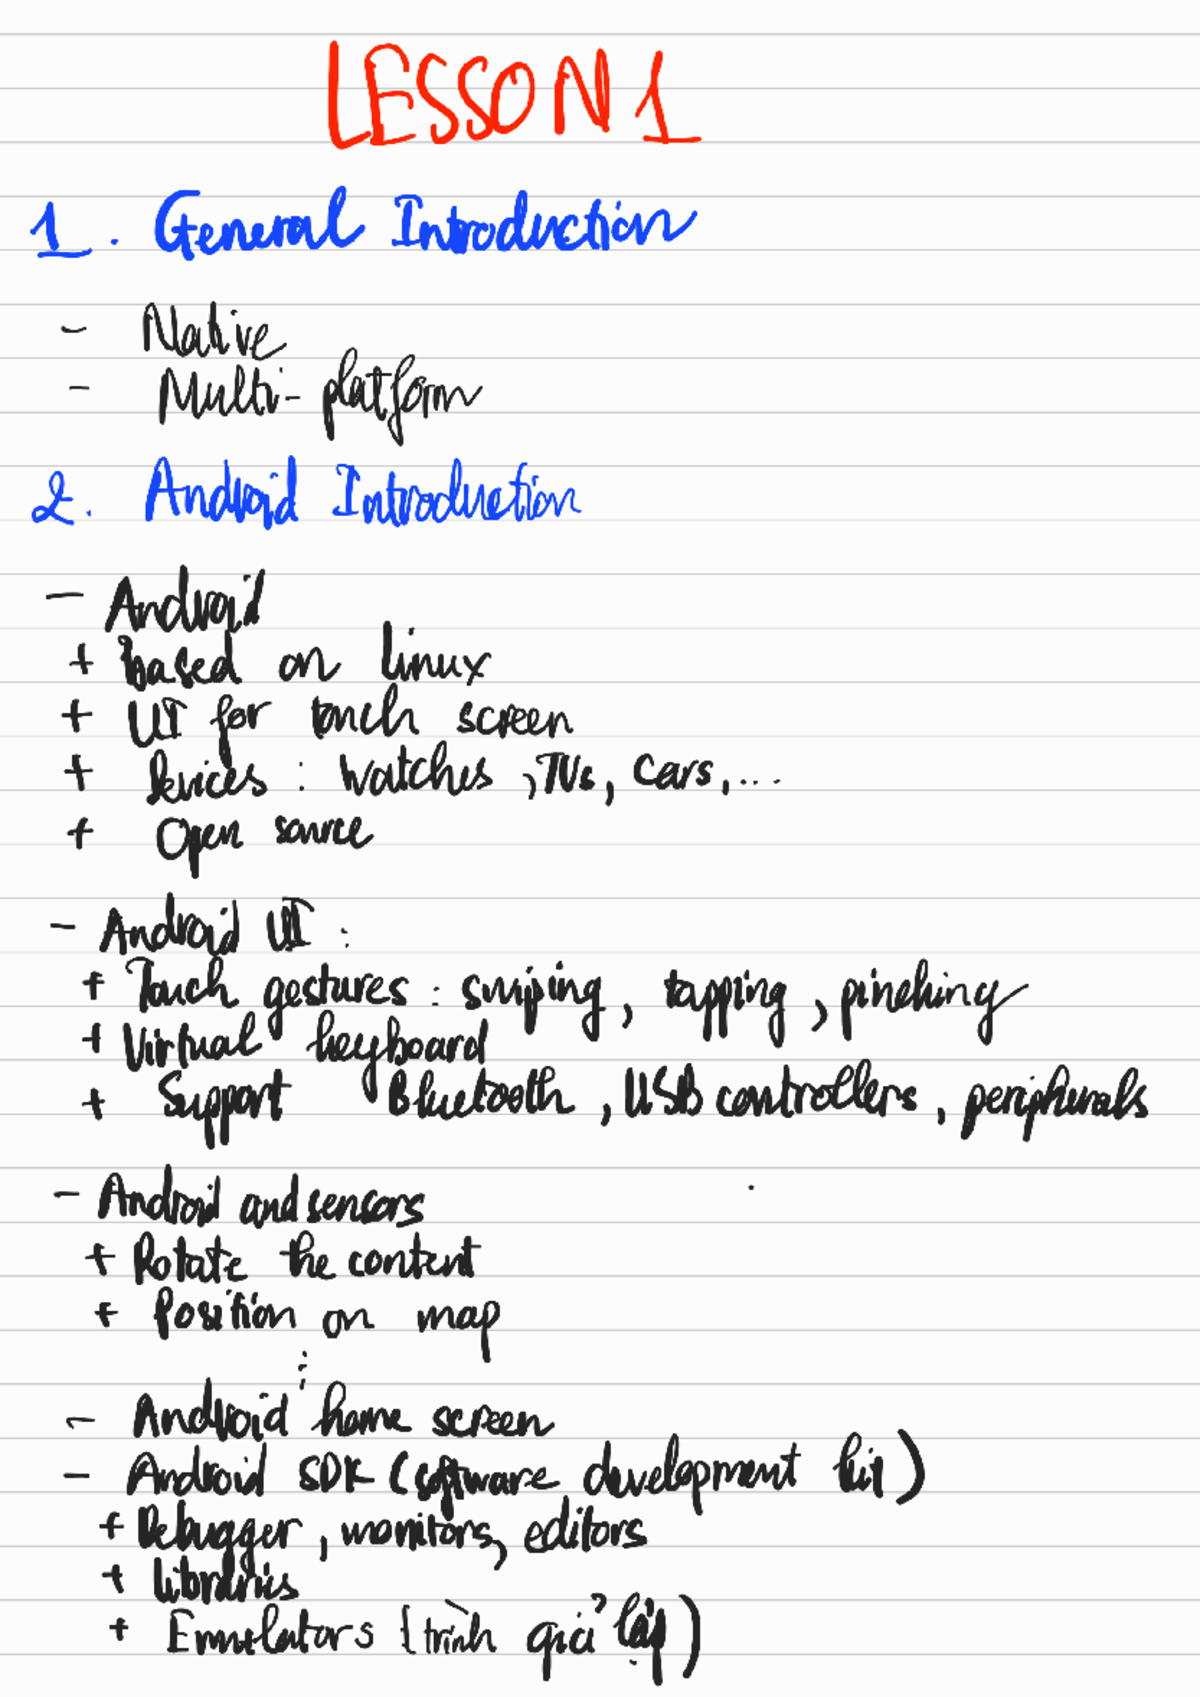 LESSON 1
1. General Introduction
- Native
- Multi-platform
2. Android Introduction
- Android
+ based on linux
+ UI for touch screen
+ Devices : Watches , TVs, Cars, ...
+ Open source
- Android UI :
+ Touch gestures : swiping, tapping, pinching
+ Virtual keyboard
+ Support Bluetooth, USB controllers, peripherals
- Android and sensors
+ Rotate the content
+ Position on map
:
- Android home screen
- Android SDK (software development kit)
+ Debugger, monitors, editors
+ libraries
+ Emulators (trình giả lập)